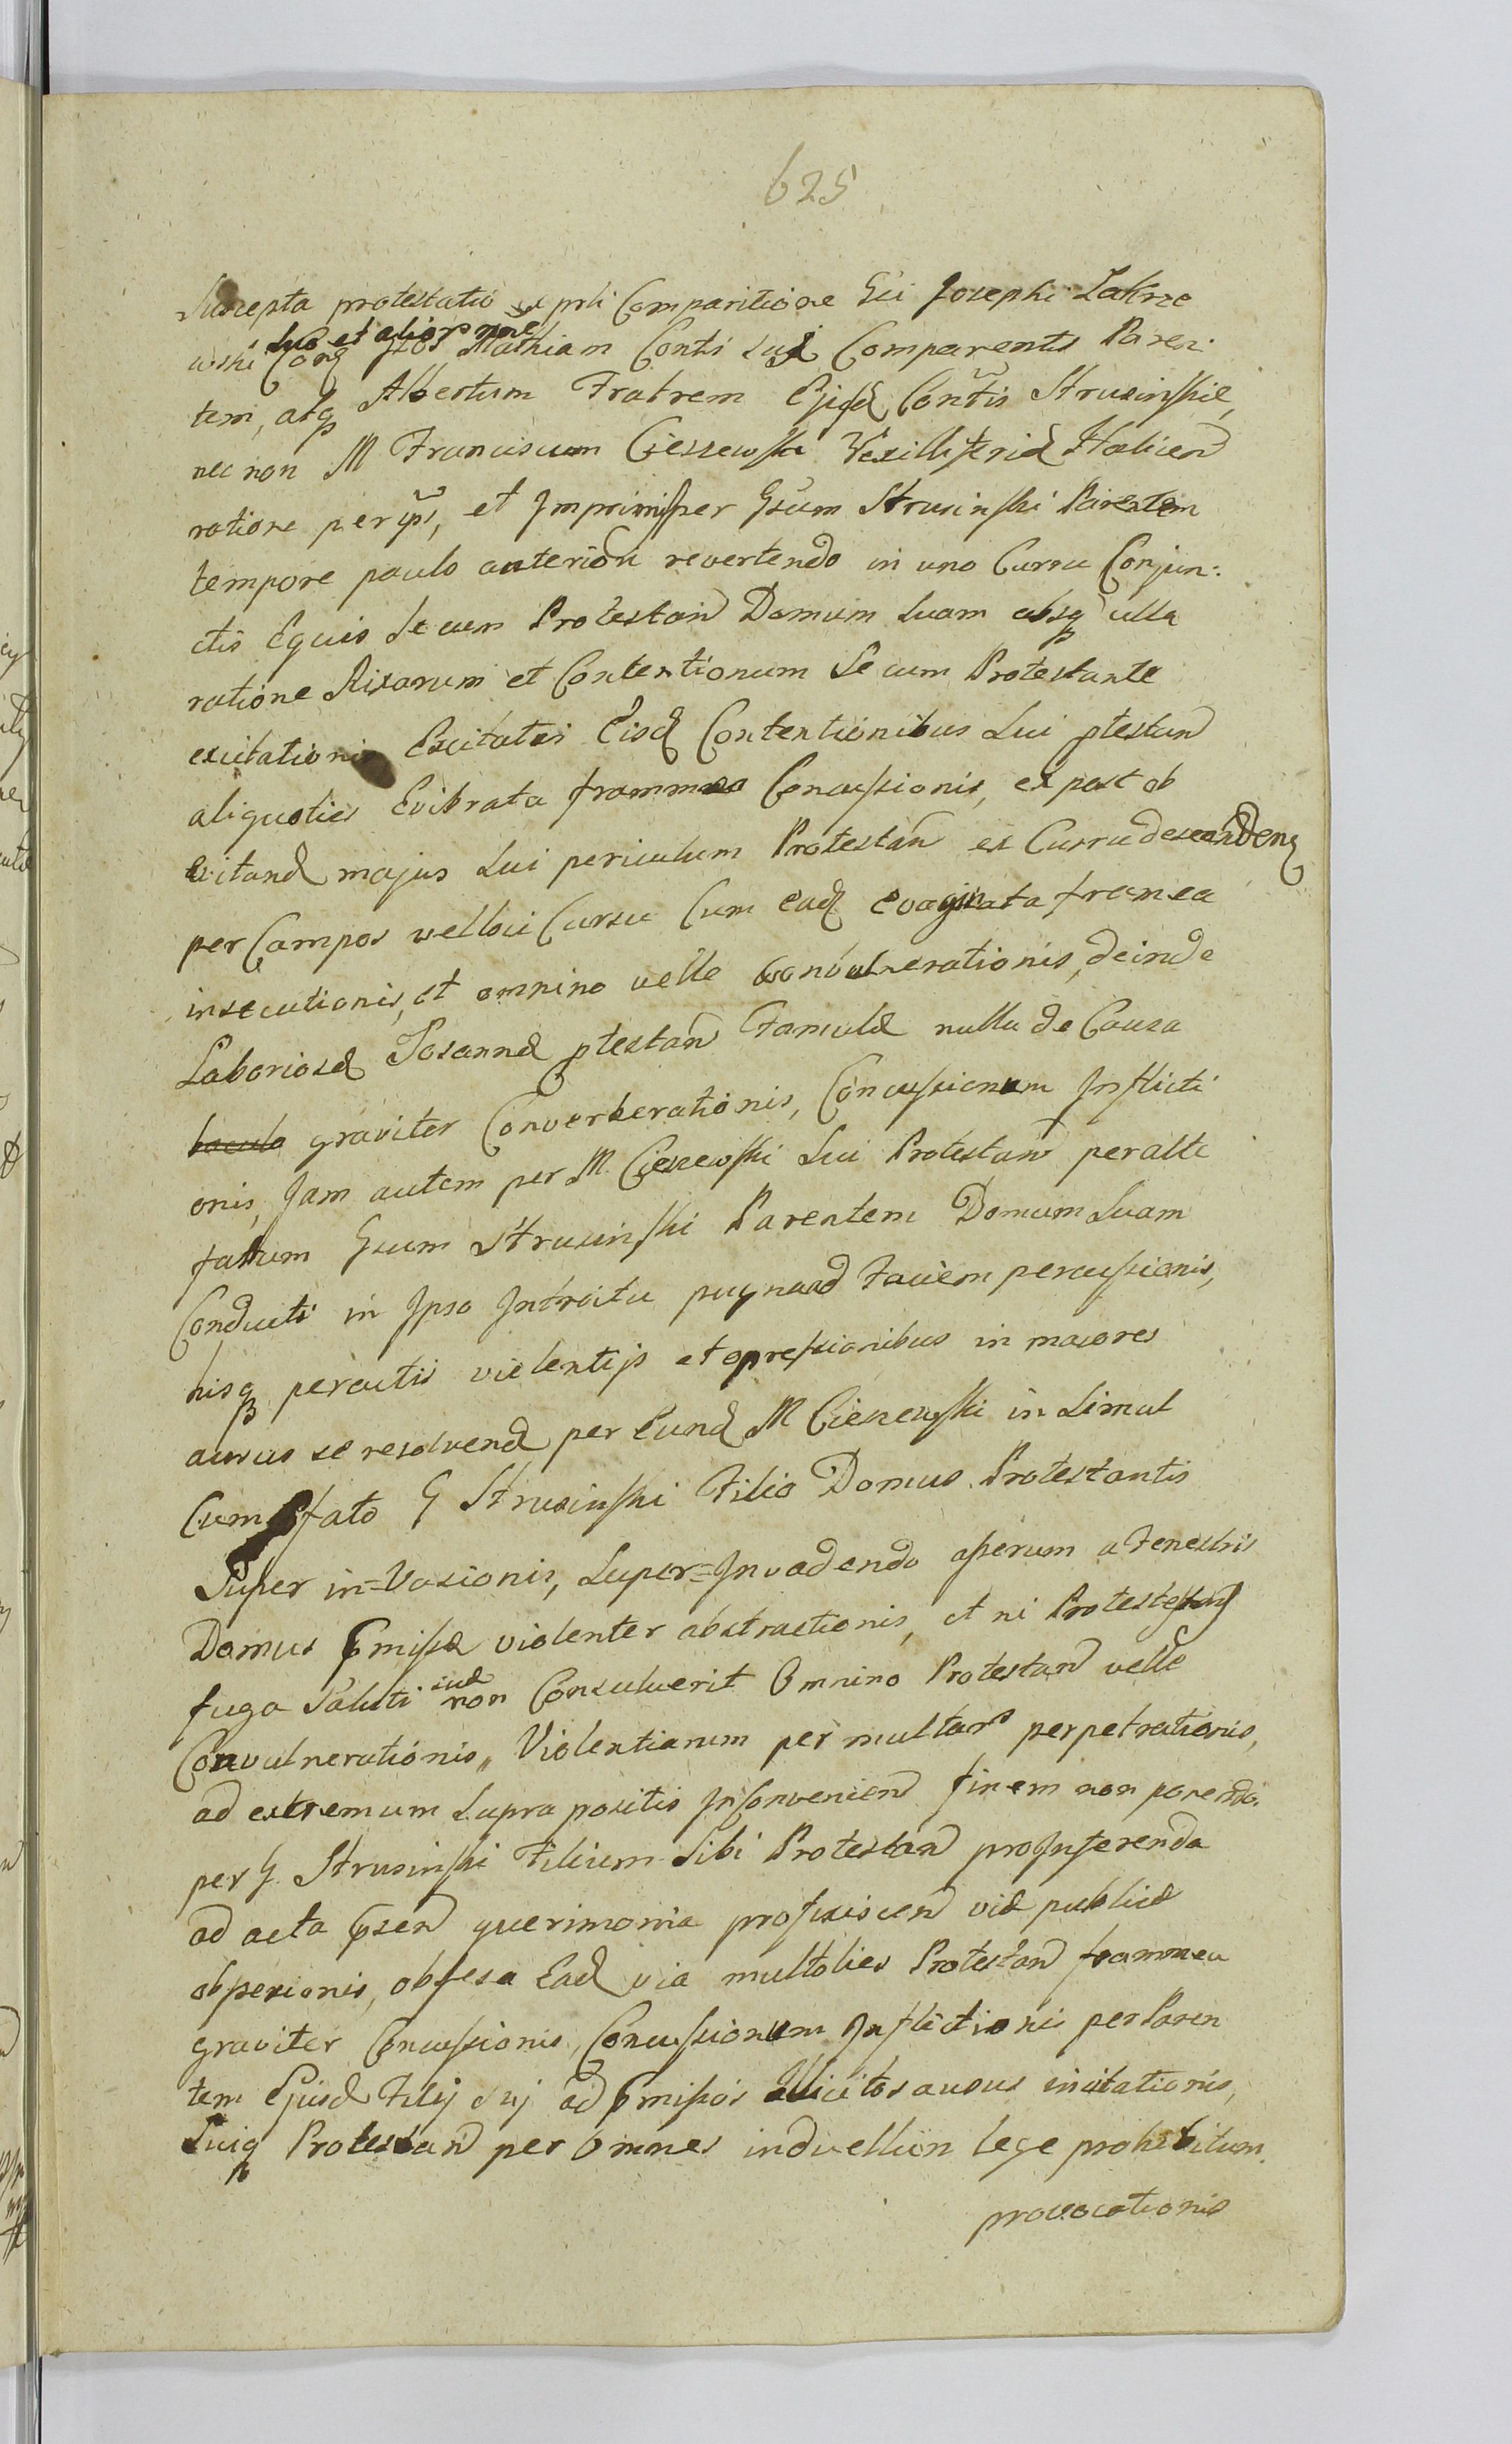 625
Suscepta protestatio ex prti Comparitione Gsi Josephi Zakrze
suo et aliors nne
wski Cong Gsos Mathiam Contis sui Comparentis Paren:
tem, atq Albertum Fratrem Ejusd Contis Strusinskie,
nec non M Franciscum Cieszewski Vexilliferid Halicen
ratione per ips, et Imprimis per Gsum Strusinski Parentem
tempore paulo anteriori revertendo in uno Curru Conjun:
ctis Equis Se cum Protestan Domum Suam absq ulla
ratione Rixarum et Contentionum Se cum Protestante
excitationis Excitatis Eisd Contentionibus Sui ptestan
aliquoties Evibrata frammea Concussionis, ex post ob
Evitand majus Sui periculum Protestan ex Curru descendeng
per Campos velloci Cursu Cum Ead Evaginata framea
insecutionis, et omnino velle Convulnerationis, deinde
Laboriosæ Zosannæ ptestan Famulæ nulla de Causa
baculo graviter Converberationis, Concussionum Inflicti
onis, Jam autem per M. Cieszewski Sui Protestan per alte
fatum Gsum Strusinski Parentem Domum Suam
Conducti in Ipso Introitu pugna ad Faciem percussionis,
hisq peractis violentijs et opressionibus in maiores
ausus se resolvend per Eund M Cieszewski in Simul
Cum pfato G Strusinski Filio Domus Protestantis
Super in=Vasionis, Super=Invadendo asserum a Fenestris
Domus pmissæ violenter abstractionis, et ni Protestans
fuga Saluti suæ non Consuluerit Omnino Protestan velle
Convulnerationis, Violentiarum per multars perpetrationis,
ad extremum Supra positis Inconvenien finem non ponendo.
per G. Strusinski Filium Sibi Protestan pro Inferenda
ad acta psen querimonia proficiscen viæ publicæ
obsessionis, obsessa Ead via multoties Protestan frammea
graviter Concussionis, Concussionum Inflictionis per Paren
tem Ejusd Filij Sui ad pmissos Illicitos ausus incitationis,
Suiq Protestan per Omnes in duellum lege prohibitum.
provocationis